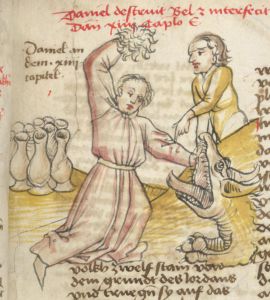 Daniel destruit Bel et interfecit
Dan xiiij Caplo
Daniel an
dem · xiiij
capitel ·
volkh zwelf stain vor
dem grundt des Jordans
und trueg sy auf das